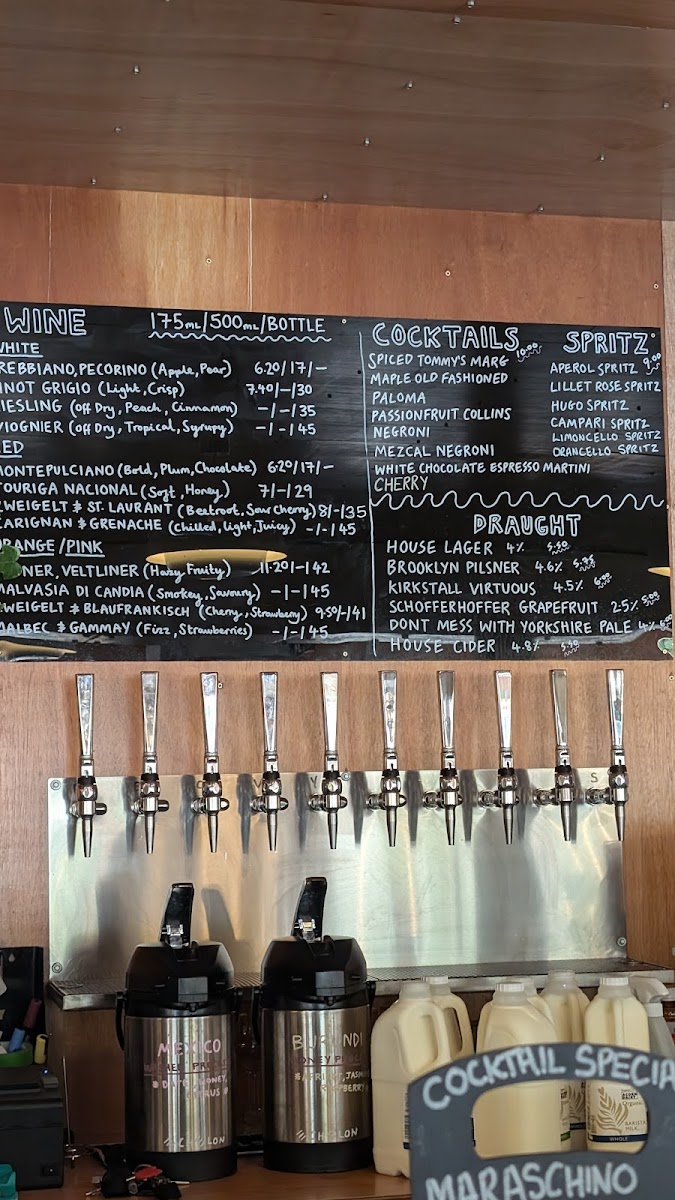 WINE 175ML/500ML/BOTTLE
WHITE
REBBIANO, PECORINO (Apple, Pear) 6.20/17/-
INOT GRIGIO (Light, Crisp) 7.40/-/30
IESLING (Off Dry, Peach, Cinnamon) -/-/35
IOGNIER (Off Dry, Tropical, Syrupy) -/-/45
RED
MONTEPULCIANO (Bold, Plum, Chocolate) 6.20/17/-
TOURIGA NACIONAL (Soft, Honey) 7/-/29
ZWEIGELT & ST. LAURANT (Beetroot, Sour Cherry) 8/-/35
CARIGNAN & GRENACHE (Chilled, Light, Juicy) -/-/45
ORANGE/PINK
NER, VELTLINER (Hazy Fruity) 11.20/-/42
MALVASIA DI CANDIA (Smokey, Savoury) -/-/45
ZWEIGELT & BLAUFRANKISCH (Cherry, Strawberry) 9.50/-/41
MALBEC & GAMMAY (Fizz, Strawberries) -/-/45
COCKTAILS 10.00
SPICED TOMMY'S MARG
MAPLE OLD FASHIONED
PALOMA
PASSIONFRUIT COLLINS
NEGRONI
MEZCAL NEGRONI
WHITE CHOCOLATE ESPRESSO MARTINI
CHERRY
SPRITZ 9.00
APEROL SPRITZ
LILLET ROSE SPRITZ
HUGO SPRITZ
CAMPARI SPRITZ
LIMONCELLO SPRITZ
ORANCELLO SPRITZ
DRAUGHT
HOUSE LAGER 4% 5.50
BROOKLYN PILSNER 4.6% 5.75
KIRKSTALL VIRTUOUS 4.5% 6.00
SCHOFFERHOFFER GRAPEFRUIT 2.5% 5.00
DONT MESS WITH YORKSHIRE PALE
HOUSE CIDER 4.8% 5.50
MEXICO
HONEY,
BURUNDI
HONEY
APRICOT, JASMINE
RASPBERRY
Organic
BARISTA
MILK
WHOLE
COCKTAIL SPECIA
MARASCHINO